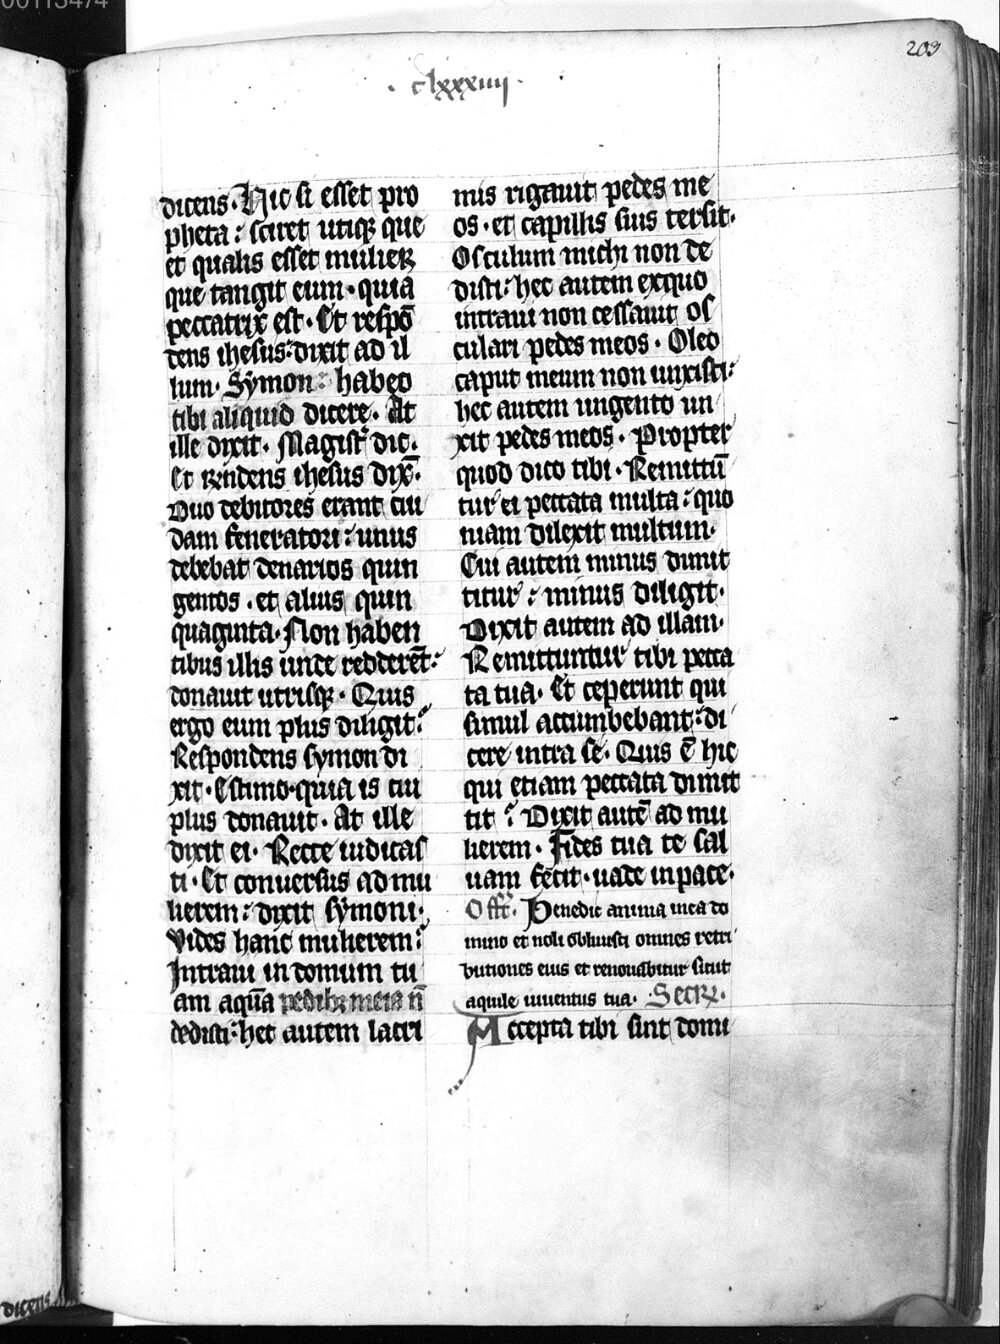 00113474
203
· clxxxiiij ·
dicens · Hic si esset pro
pheta : sciret utiqꝫ que
et qualis esset mulier
que tangit eum · quia
peccatrix est · Et respō
dens ihesus : dixit ad il
lum · Sẏmon : habeo
tibi aliquid dicere · At
ille dixit · Magist̾ dic ·
Et r̄ndens ihesus dix̄ ·
Duo debitores erant cui
dam feneratori : unus
debebat denarios quin
gentos · et alius quin
quaginta · Non haben
tibus illis unde redderēt :
donauit utrisqꝫ · Quis
ergo eum plus diligit ?
Respondens symon di
xit · Estimo · quia is cui
plus donauit · At ille
dixit ei · Recte iudicas
ti · Et conuersus ad mu
lierem : dixit sẏmoni ·
Vides hanc mulierem ?
Intraui in domum tu
am aquā pedibꝫ meis nō
dedisti : hec autem lacri
mis rigauit pedes me
os · et capillis suis tersit ·
Osculum michi non de
disti : hec autem exquo
intraui non cessauit os
culari pedes meos · Oleo
caput meum non unxisti :
hec autem ungento un
xit pedes meos · Propter
quod dico tibi · Remittū
tur ei peccata multa : quo
niam dilexit multum ·
Cui autem minus dimit
titur : minus diligit ·
Dixit autem ad illam ·
Remittuntur tibi pecca
ta tua · Et ceperunt qui
simul accumbebant : di
cere intra se · Quis ē hic
qui etiam peccata dimit
tit ? Dixit autē ad mu
lierem · Fides tua te sal
uam fecit · uade in pace ·
Offr̄ · Benedic anima mea do
mino et noli obliuisci omnes retri
butiones eius et renouabitur sicut
aquile iuuentus tua · Secrꝫ ·
Accepta tibi sint domi
dicens